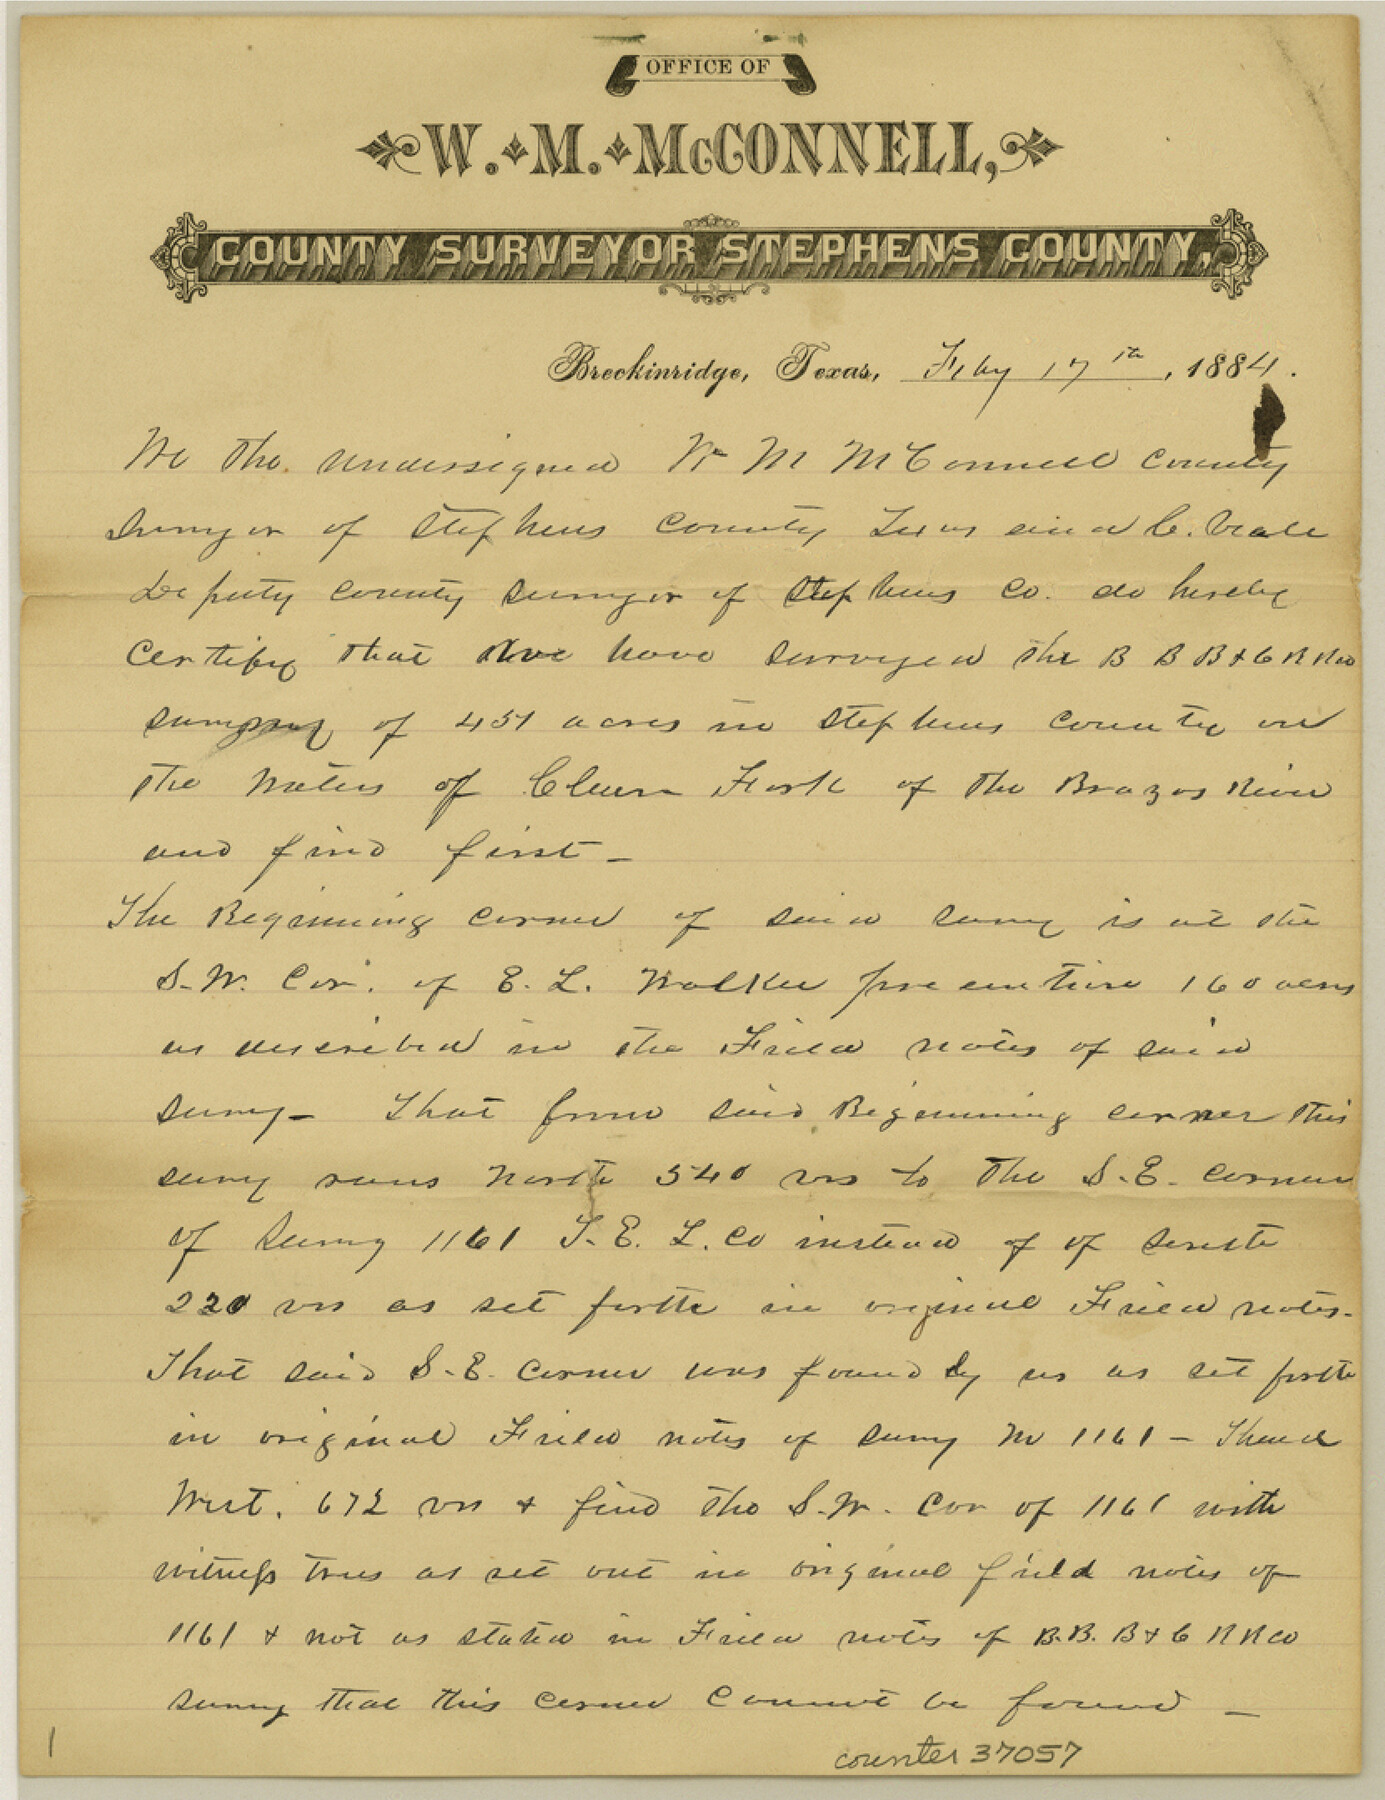 OFFICE OF
W. M. McCONNELL,
COUNTY SURVEYOR STEPHENS COUNTY,
Breckinridge, Texas, Feby 17th, 1884.
We the undersigned W M McConnell County
Survyor of Stephens County Texas and C. Veale
Deputy County Survyor of Stephens Co. do hereby
certify that we have surveyed the B B B & C R R Co
survey of 451 acres in Stephens County on
the waters of Clear Fork of the Brazos River
and find first -
The Beginning corner of said survy is at the
S.W. Cor. of E. L. Walker pre emtion 160 acres
as described in the Field notes of said
survy - That from said Beginning corner this
survy runs North 540 vrs to the S.E. corner
of Survy 1161 T. E. L. Co instead of of South
220 vrs as set forth in original Field notes -
That said S.E. corner was found by us as set forth
in original Field notes of survy No 1161 - Thence
West. 672 vrs & find the S.W. Cor of 1161 with
witness trees as set out in original field notes of
1161 & not as stated in Field notes of B.B. B & C R R Co
survy that this corner cannot be found -
1
counter 37057